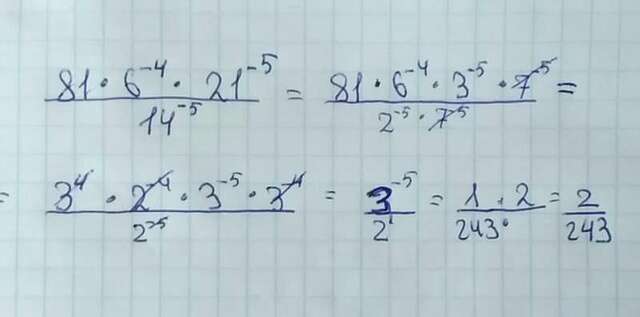 81 · 6⁻⁴ · 21⁻⁵ / 14⁻⁵ = 81 · 6⁻⁴ · 3⁻⁵ · 7⁻⁵ / 2⁻⁵ · 7⁻⁵ =
= 3⁴ · 2⁻⁴ · 3⁻⁵ · 3⁻⁴ / 2⁻⁵ = 3⁻⁵ / 2¹ = 1 · 2 / 243 = 2 / 243